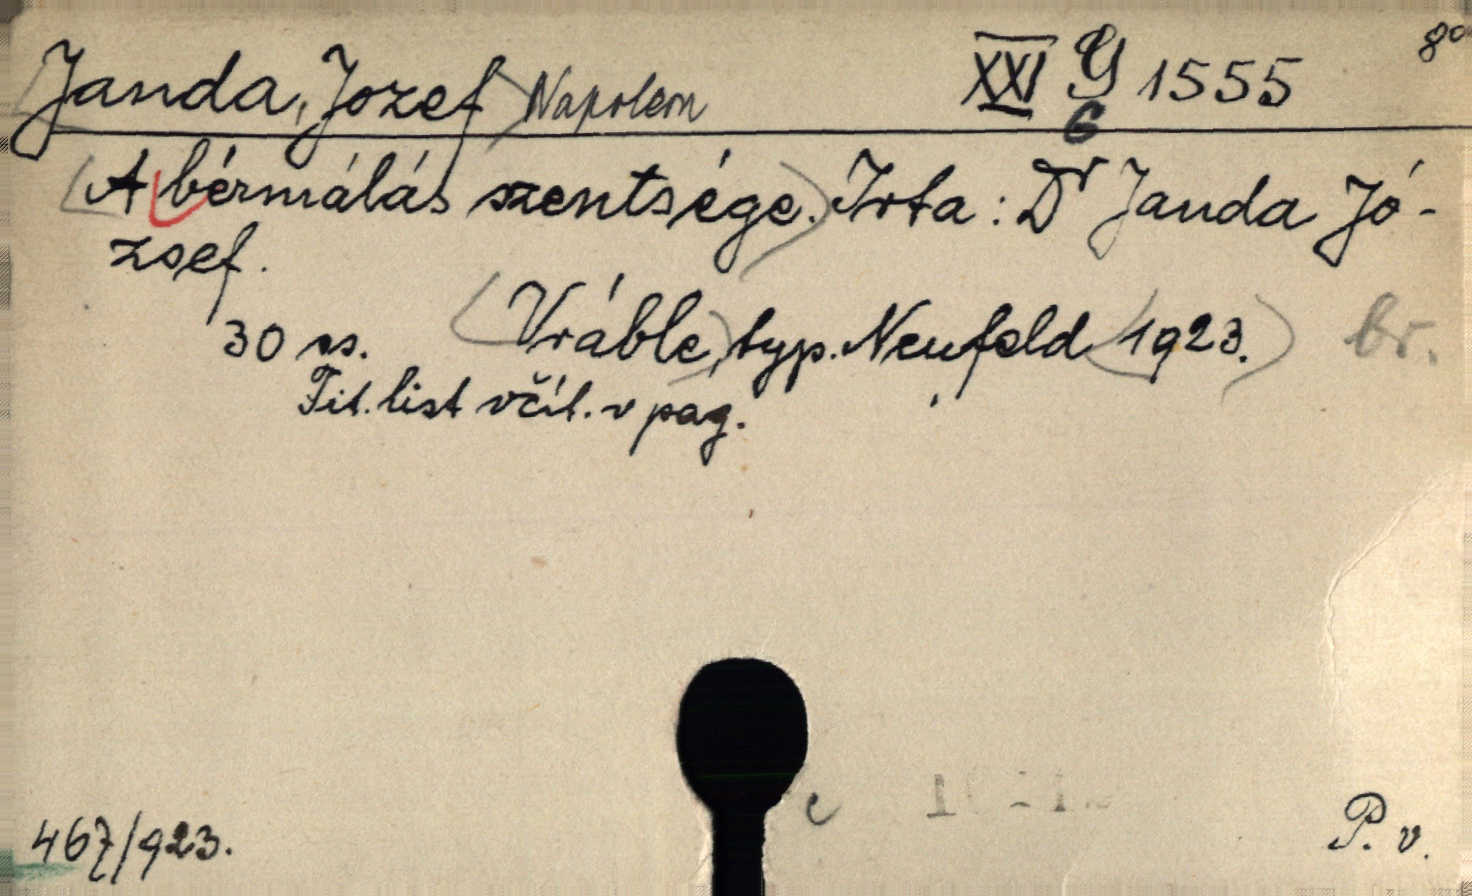 Janda, Jozef Napoleon XXI G 1555 8°
6
(A bérmálás szentsége.) Irta: Dr Janda Jó-
zsef.
30 ss. (Vráble, typ. Neufeld (1923.) br.
Tit. list včít. v pag.
467/923. P. v.